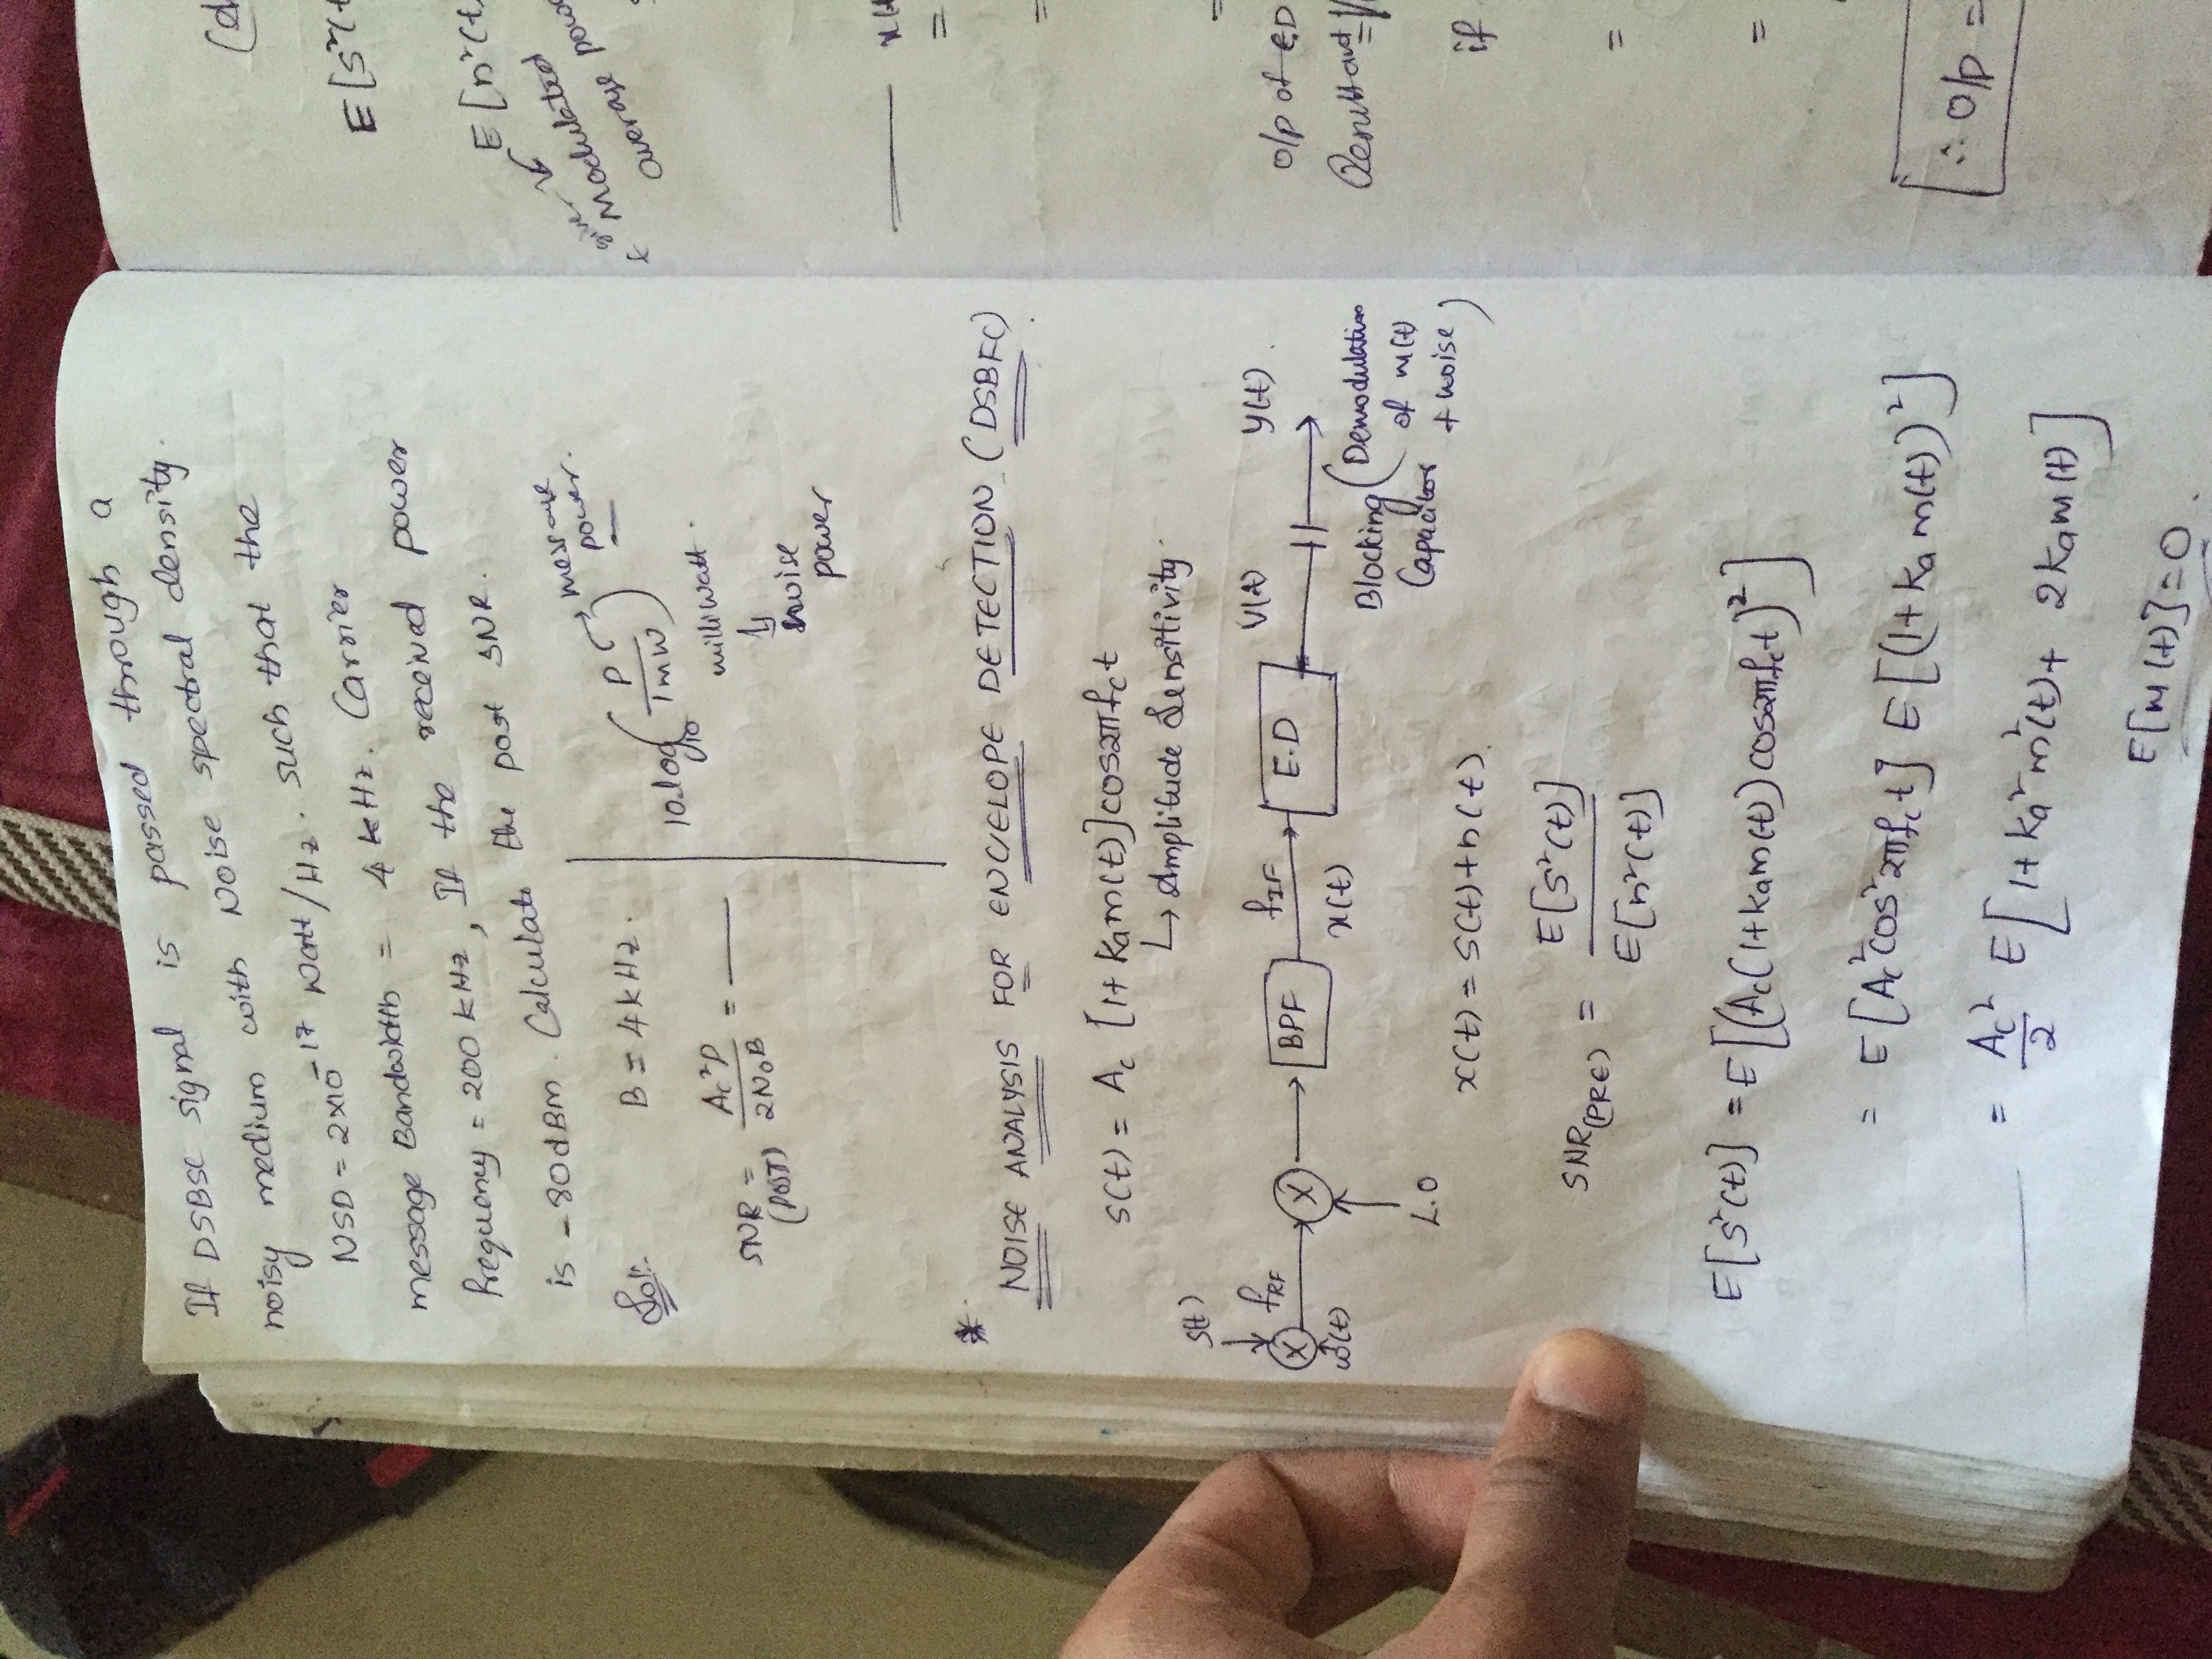 If DSBSC signal is passed through a
noisy medium with Noise spectral density.
NSD = 2×10⁻¹⁷ Watt/Hz. such that the
message Bandwidth = 4 kHz. Carrier
frequency = 200 kHz, If the received power
is -80dBm. Calculate the post SNR.
Sol:
B = 4kHz.
SNR(POST) = Ac²P / 2N₀B = ——
10.log₁₀(P / 1mW)
→ message power.
milliwatt.
↳ noise power
* NOISE ANALYSIS FOR ENVELOPE DETECTION (DSBFC)
s(t) = Ac [1+kam(t)]cos2πfct
↳ Amplitude Sensitivity
s(t)
fRF
X
w(t)
X
L.O
BPF
fIF
x(t)
E.D
V(t)
y(t).
Blocking Capacitor
(Demodulation of m(t) + noise)
x(t) = s(t)+n(t).
SNR(PRE) = E[s²(t)] / E[n²(t)]
E[s²(t)] = E[(Ac(1+kam(t))cos2πfct)²]
= E[Ac²cos²2πfct] E[(1+ka m(t))²]
= Ac²/2 E[1+ka²m²(t)+ 2kam(t)]
E[m(t)]=0.
E[s²(t
E[n²(t)
given
Modulated
average
x(t
=
=
=
o/p of ED
Resultant =
if
=
=
∴ o/p =